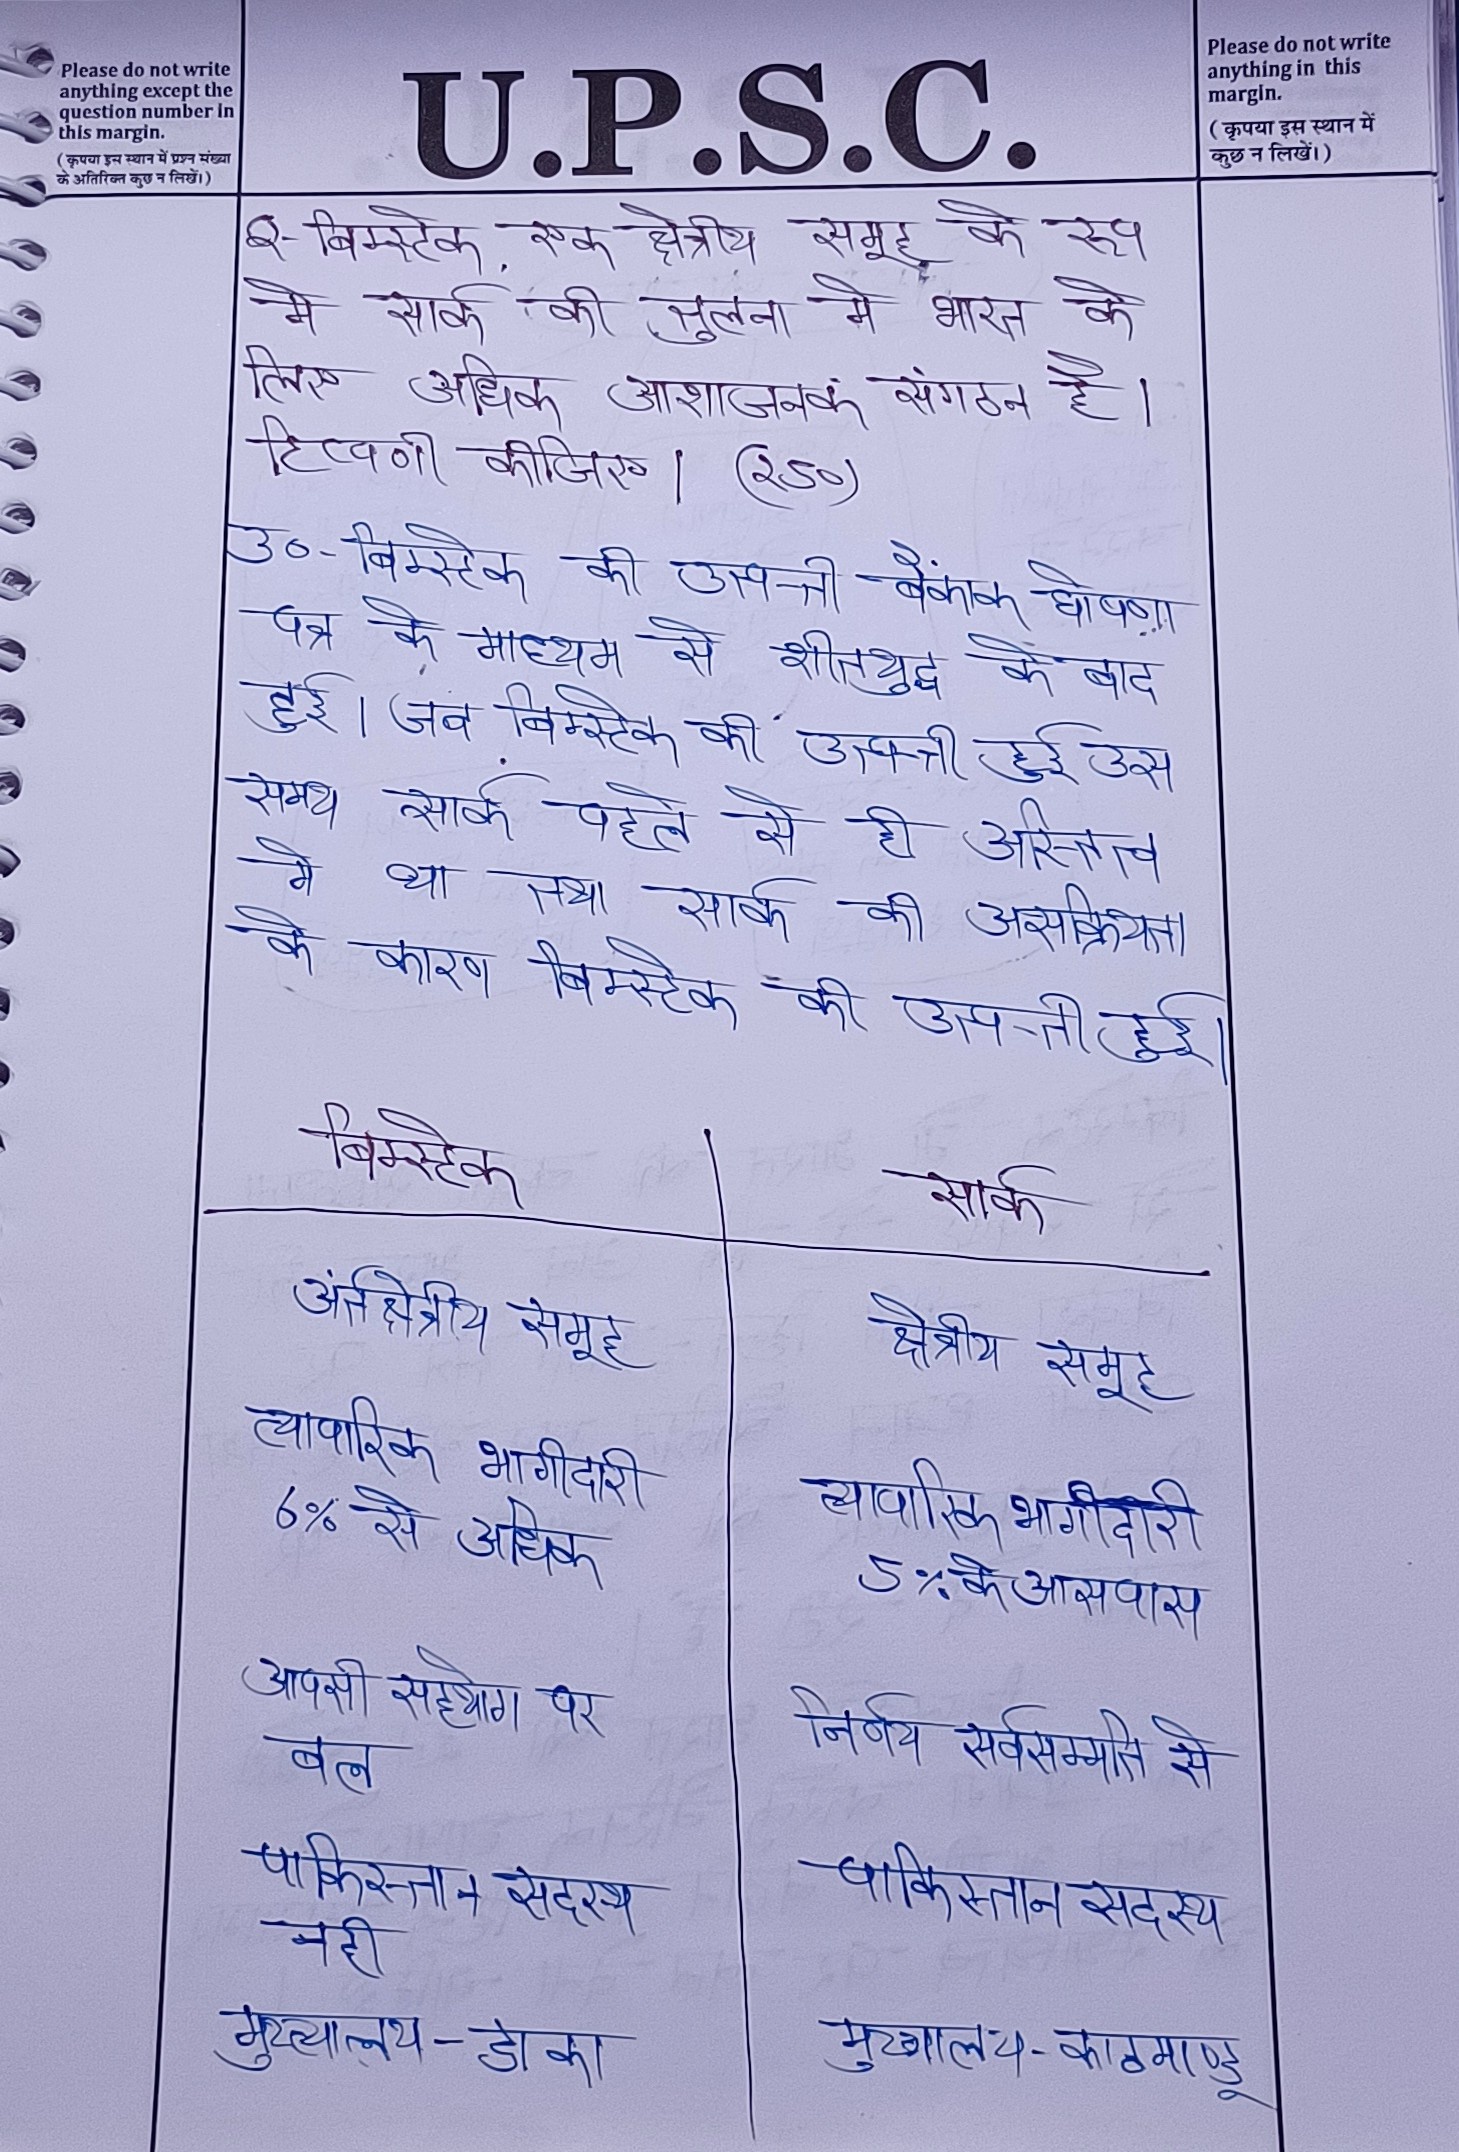 Please do not write
anything except the
question number in
this margin.
(कृपया इस स्थान में प्रश्न संख्या
के अतिरिक्त कुछ न लिखें।)
U.P.S.C.
Please do not write
anything in this
margin.
(कृपया इस स्थान में
कुछ न लिखें।)
Q-बिम्स्टेक, एक क्षेत्रीय समूह के रूप
मे सार्क की तुलना मे भारत के
लिए अधिक आशाजनक संगठन है।
टिप्पणी कीजिए। (250)
उ०-बिम्स्टेक की उत्पत्ती बैंकाक घोषणा
पत्र के माध्यम से शीतयुद्ध के बाद
हुई। जब बिम्स्टेक की उत्पत्ती हुई उस
समय सार्क पहले से ही अस्तित्व
मे था तथा सार्क की असक्रियता
के कारण बिम्स्टेक की उत्पत्ती हुई।
बिम्स्टेक
सार्क
अंर्तक्षेत्रीय समूह
क्षेत्रीय समूह
व्यापारिक भागीदारी
6% से अधिक
व्यापारिक भागीदारी
5% के आसपास
आपसी सहयोग पर
बल
निर्णय सर्वसम्मति से
पाकिस्तान सदस्य
नही
पाकिस्तान सदस्य
मुख्यालय - ढाका
मुख्यालय - काठमाण्डू